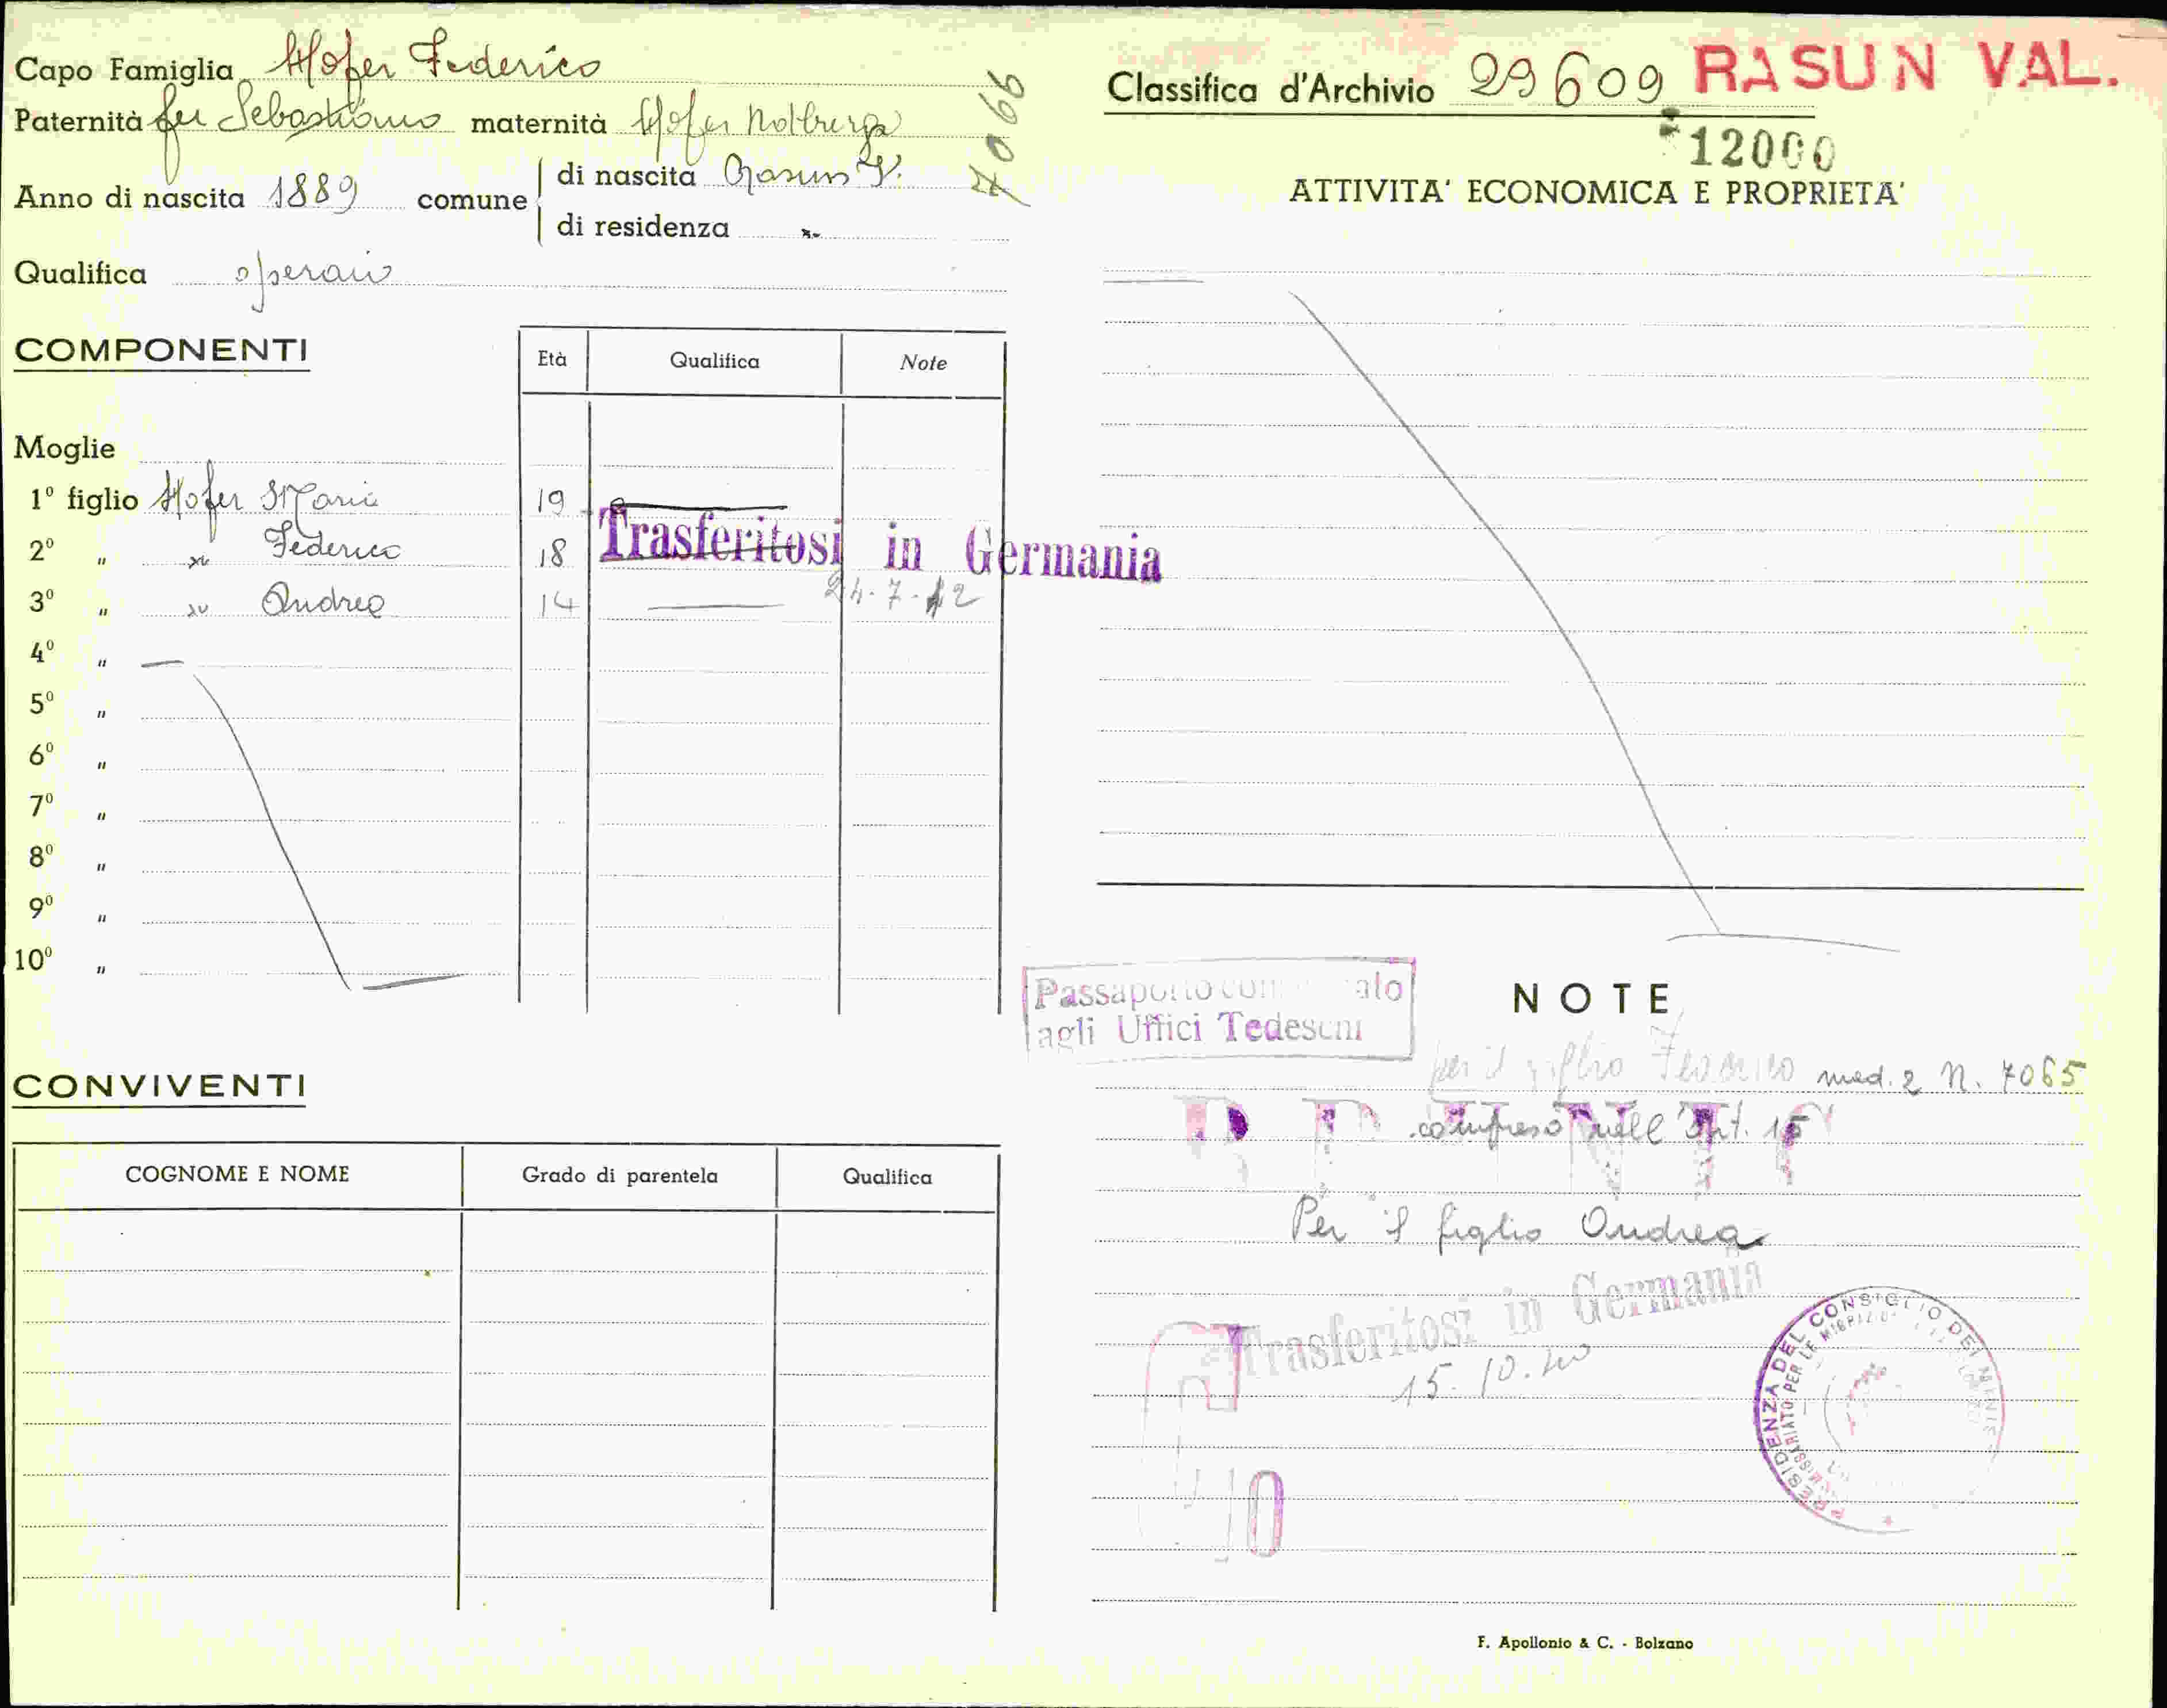 Capo Famiglia Hofer Federico
Paternità fu Sebastiano maternità Hofer Notburga
7066
Anno di nascita 1889 comune
di nascita Rasun V.
di residenza "
Qualifica operaio
COMPONENTI
Età Qualifica Note
Moglie
1º figlio Hofer Maria 19
2º " " Federico 18
Trasferitosi in Germania
3º " " Andrea 14
24-7-42
4º "
5º "
6º "
7º "
8º "
9º "
10º "
CONVIVENTI
COGNOME E NOME Grado di parentela Qualifica
Classifica d'Archivio 29609 RASUN VAL.
12000
ATTIVITA' ECONOMICA E PROPRIETA'
Passaporto con ato
agli Uffici Tedeschi
NOTE
per il figlio Federico mod. 2 N. 7065
compreso nell'Art. 15
Per il figlio Andrea
Trasferitosi in Germania
15.10.40
PRESIDENZA DEL CONSIGLIO DEI MINIS
F. Apollonio & C. - Bolzano